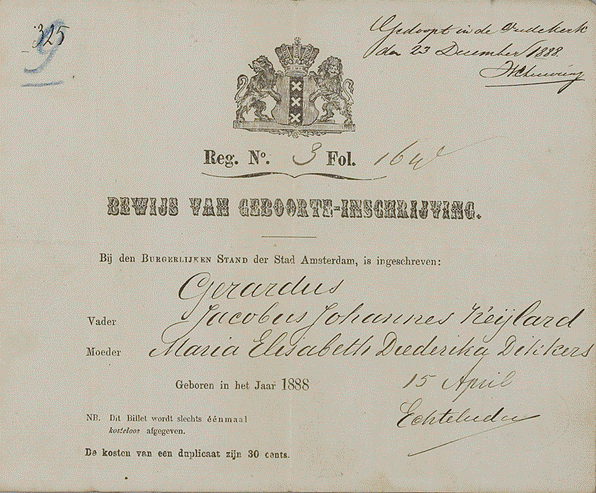 325
9
Gedoopt in de Oudekerk
den 23 December 1888.
Reg. No. 3 Fol. 164
BEWIJS VAN GEBOORTE-INSCHRIJVING.
Bij den BURGERLIJKEN STAND der Stad Amsterdam, is ingeschreven:
Gerardus
Vader Jacobus Johannes Keijlard
Moeder Maria Elisabeth Diederika Dikkers
Geboren in het Jaar 1888 15 April
NB. Dit Billet wordt slechts éénmaal
kosteloos afgegeven.
Echtelieden
De kosten van een duplicaat zijn 30 cents.